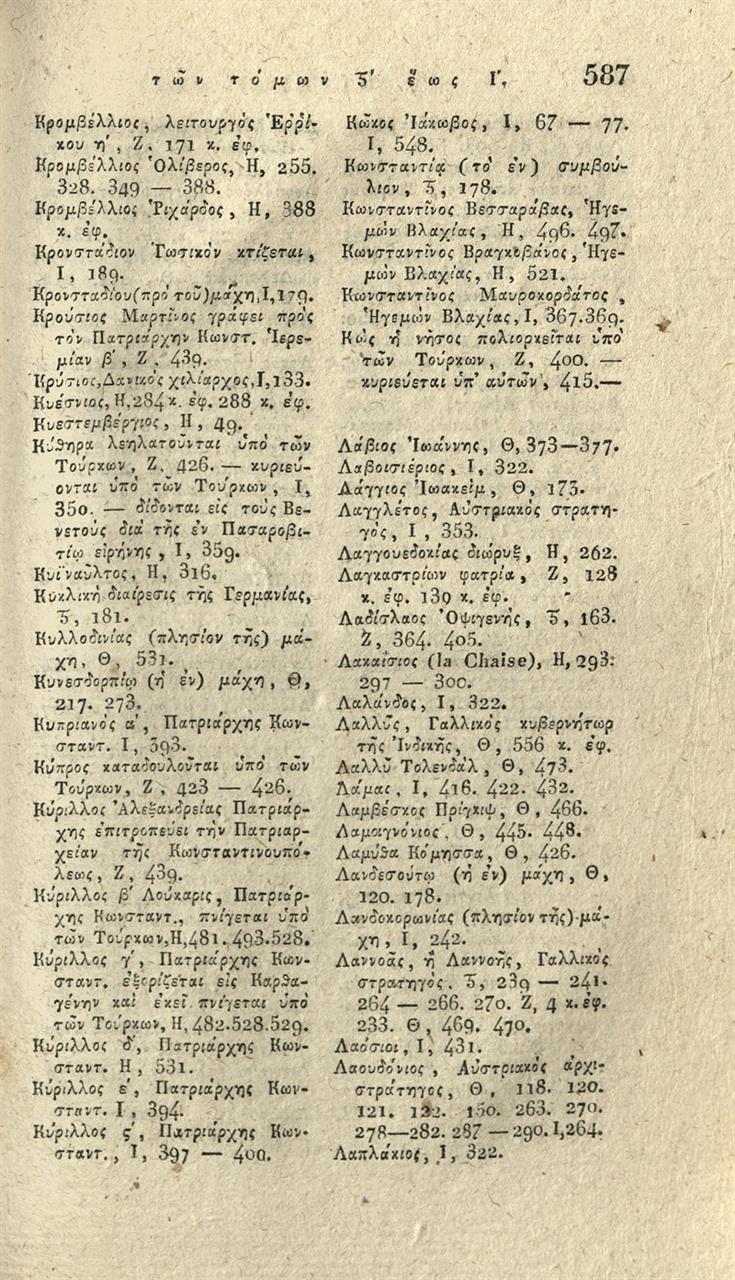 τῶν τόμων Ϛ' ἕως Ι'. 587
Κρομβέλλιος, λειτουργὸς Ἑῤῥί-
κου η', Ζ. 171 κ. ἐφ.
Κρομβέλλιος Ὀλίβερος, Η, 255.
328. 349 — 388.
Κρομβέλλιος Ῥιχάρδος, Η, 388
κ. ἐφ.
Κρονστάδιον Ῥωσικὸν κτίζεται,
Ι, 189.
Κρονσταδίου (πρὸ τοῦ) μάχη, Ι, 179.
Κρούσιος Μαρτῖνος γράφει πρὸς
τὸν Πατριάρχην Κωνστ. Ἱερε-
μίαν β', Ζ. 439.
Κρύσιος, Δανικὸς χιλίαρχος, Ι, 133.
Κυέσνιος, Η, 284 κ. ἐφ. 288 κ. ἐφ.
Κυεστεμβέργιος, Η, 49.
Κύθηρα λεηλατοῦνται ὑπὸ τῶν
Τούρκων, Ζ, 426. — κυριεύ-
ονται ὑπὸ τῶν Τούρκων, Ι,
350. — δίδονται εἰς τοὺς Βε-
νετοὺς διὰ τῆς ἐν Πασαροβι-
τίῳ εἰρήνης, Ι, 359.
Κυϊναῦλτος, Η, 316.
Κυκλικὴ διαίρεσις τῆς Γερμανίας,
Ϛ, 181.
Κυλλοδινίας (πλησίον τῆς) μά-
χη, Θ, 531.
Κυνεσδορπίῳ (ἡ ἐν) μάχη, Θ,
217. 273.
Κυπριανὸς α', Πατριάρχης Κων-
σταντ. Ι, 393.
Κύπρος καταδουλοῦται ὑπὸ τῶν
Τούρκων, Ζ, 423 — 426.
Κύριλλος Ἀλεξανδρείας Πατριάρ-
χης ἐπιτροπεύει τὴν Πατριαρ-
χείαν τῆς Κωνσταντινουπό-
λεως, Ζ, 439.
Κύριλλος β' Λούκαρις, Πατριάρ-
χης Κωνσταντ., πνίγεται ὑπὸ
τῶν Τούρκων, Η, 481. 493. 528.
Κύριλλος γ', Πατριάρχης Κων-
σταντ. ἐξορίζεται εἰς Καρθα-
γένην καὶ ἐκεῖ πνίγεται ὑπὸ
τῶν Τούρκων, Η, 482. 528. 529.
Κύριλλος δ', Πατριάρχης Κων-
σταντ. Η, 531.
Κύριλλος ε', Πατριάρχης Κων-
σταντ. Ι, 394.
Κύριλλος ς', Πατριάρχης Κων-
σταντ., Ι, 397 — 400.
Κῶκος Ἰάκωβος, Ι, 67 — 77.
Ι, 548.
Κωνσταντίᾳ (τὸ ἐν) συμβού-
λιον, Ϛ, 178.
Κωνσταντῖνος Βεσσαράβας, Ἡγε-
μὼν Βλαχίας, Η, 496. 497.
Κωνσταντῖνος Βραγκοβάνος, Ἡγε-
μὼν Βλαχίας, Η, 521.
Κωνσταντῖνος Μαυροκορδάτος,
Ἡγεμὼν Βλαχίας, Ι, 367. 369.
Κὼς ἡ νῆσος πολιορκεῖται ὑπὸ
τῶν Τούρκων, Ζ, 400. —
κυριεύεται ὑπ' αὐτῶν, 415.—
Λάβιος Ἰωάννης, Θ, 373—377.
Λαβοισιέριος, Ι, 322.
Λάγγιος Ἰωακεὶμ, Θ, 173.
Λαγγλέτος, Αὐστριακὸς στρατη-
γὸς, Ι, 353.
Λαγγουεδοκίας διώρυξ, Η, 262.
Λαγκαστρίων φατρία, Ζ, 128
κ. ἐφ. 139 κ. ἐφ.
Λαδίσλαος Ὀψιγενὴς, Ϛ, 163.
Ζ, 364. 405.
Λακαίσιος (la Chaise), Η, 293.
297 — 300.
Λαλάνδος, Ι, 322.
Λαλλὺς, Γαλλικὸς κυβερνήτωρ
τῆς Ἰνδικῆς, Θ, 556 κ. ἐφ.
Λαλλὺ Τολενδὰλ, Θ, 473.
Λάμας, Ι, 416. 422. 432.
Λαμβέσκος Πρίγκιψ, Θ, 466.
Λαμοιγνόνιος, Θ, 445. 448.
Λαμύθα Κόμησσα, Θ, 426.
Λανδεσούτῳ (ἡ ἐν) μάχη, Θ,
120. 178.
Λανδοκορωνίας (πλησίον τῆς) μά-
χη, Ι, 242.
Λαννοᾶς, ἢ Λαννοῆς, Γαλλικὸς
στρατηγὸς, Ϛ, 239 — 241.
264 — 266. 270. Ζ, 4 κ. ἐφ.
233. Θ, 469. 470.
Λαόσιοι, Ι, 431.
Λαουδόνιος, Αὐστριακὸς ἀρχι-
στράτηγος, Θ, 118. 120.
121. 122. 150. 263. 270.
278—282. 287 — 290. Ι, 264.
Λαπλάκιος, Ι, 322.